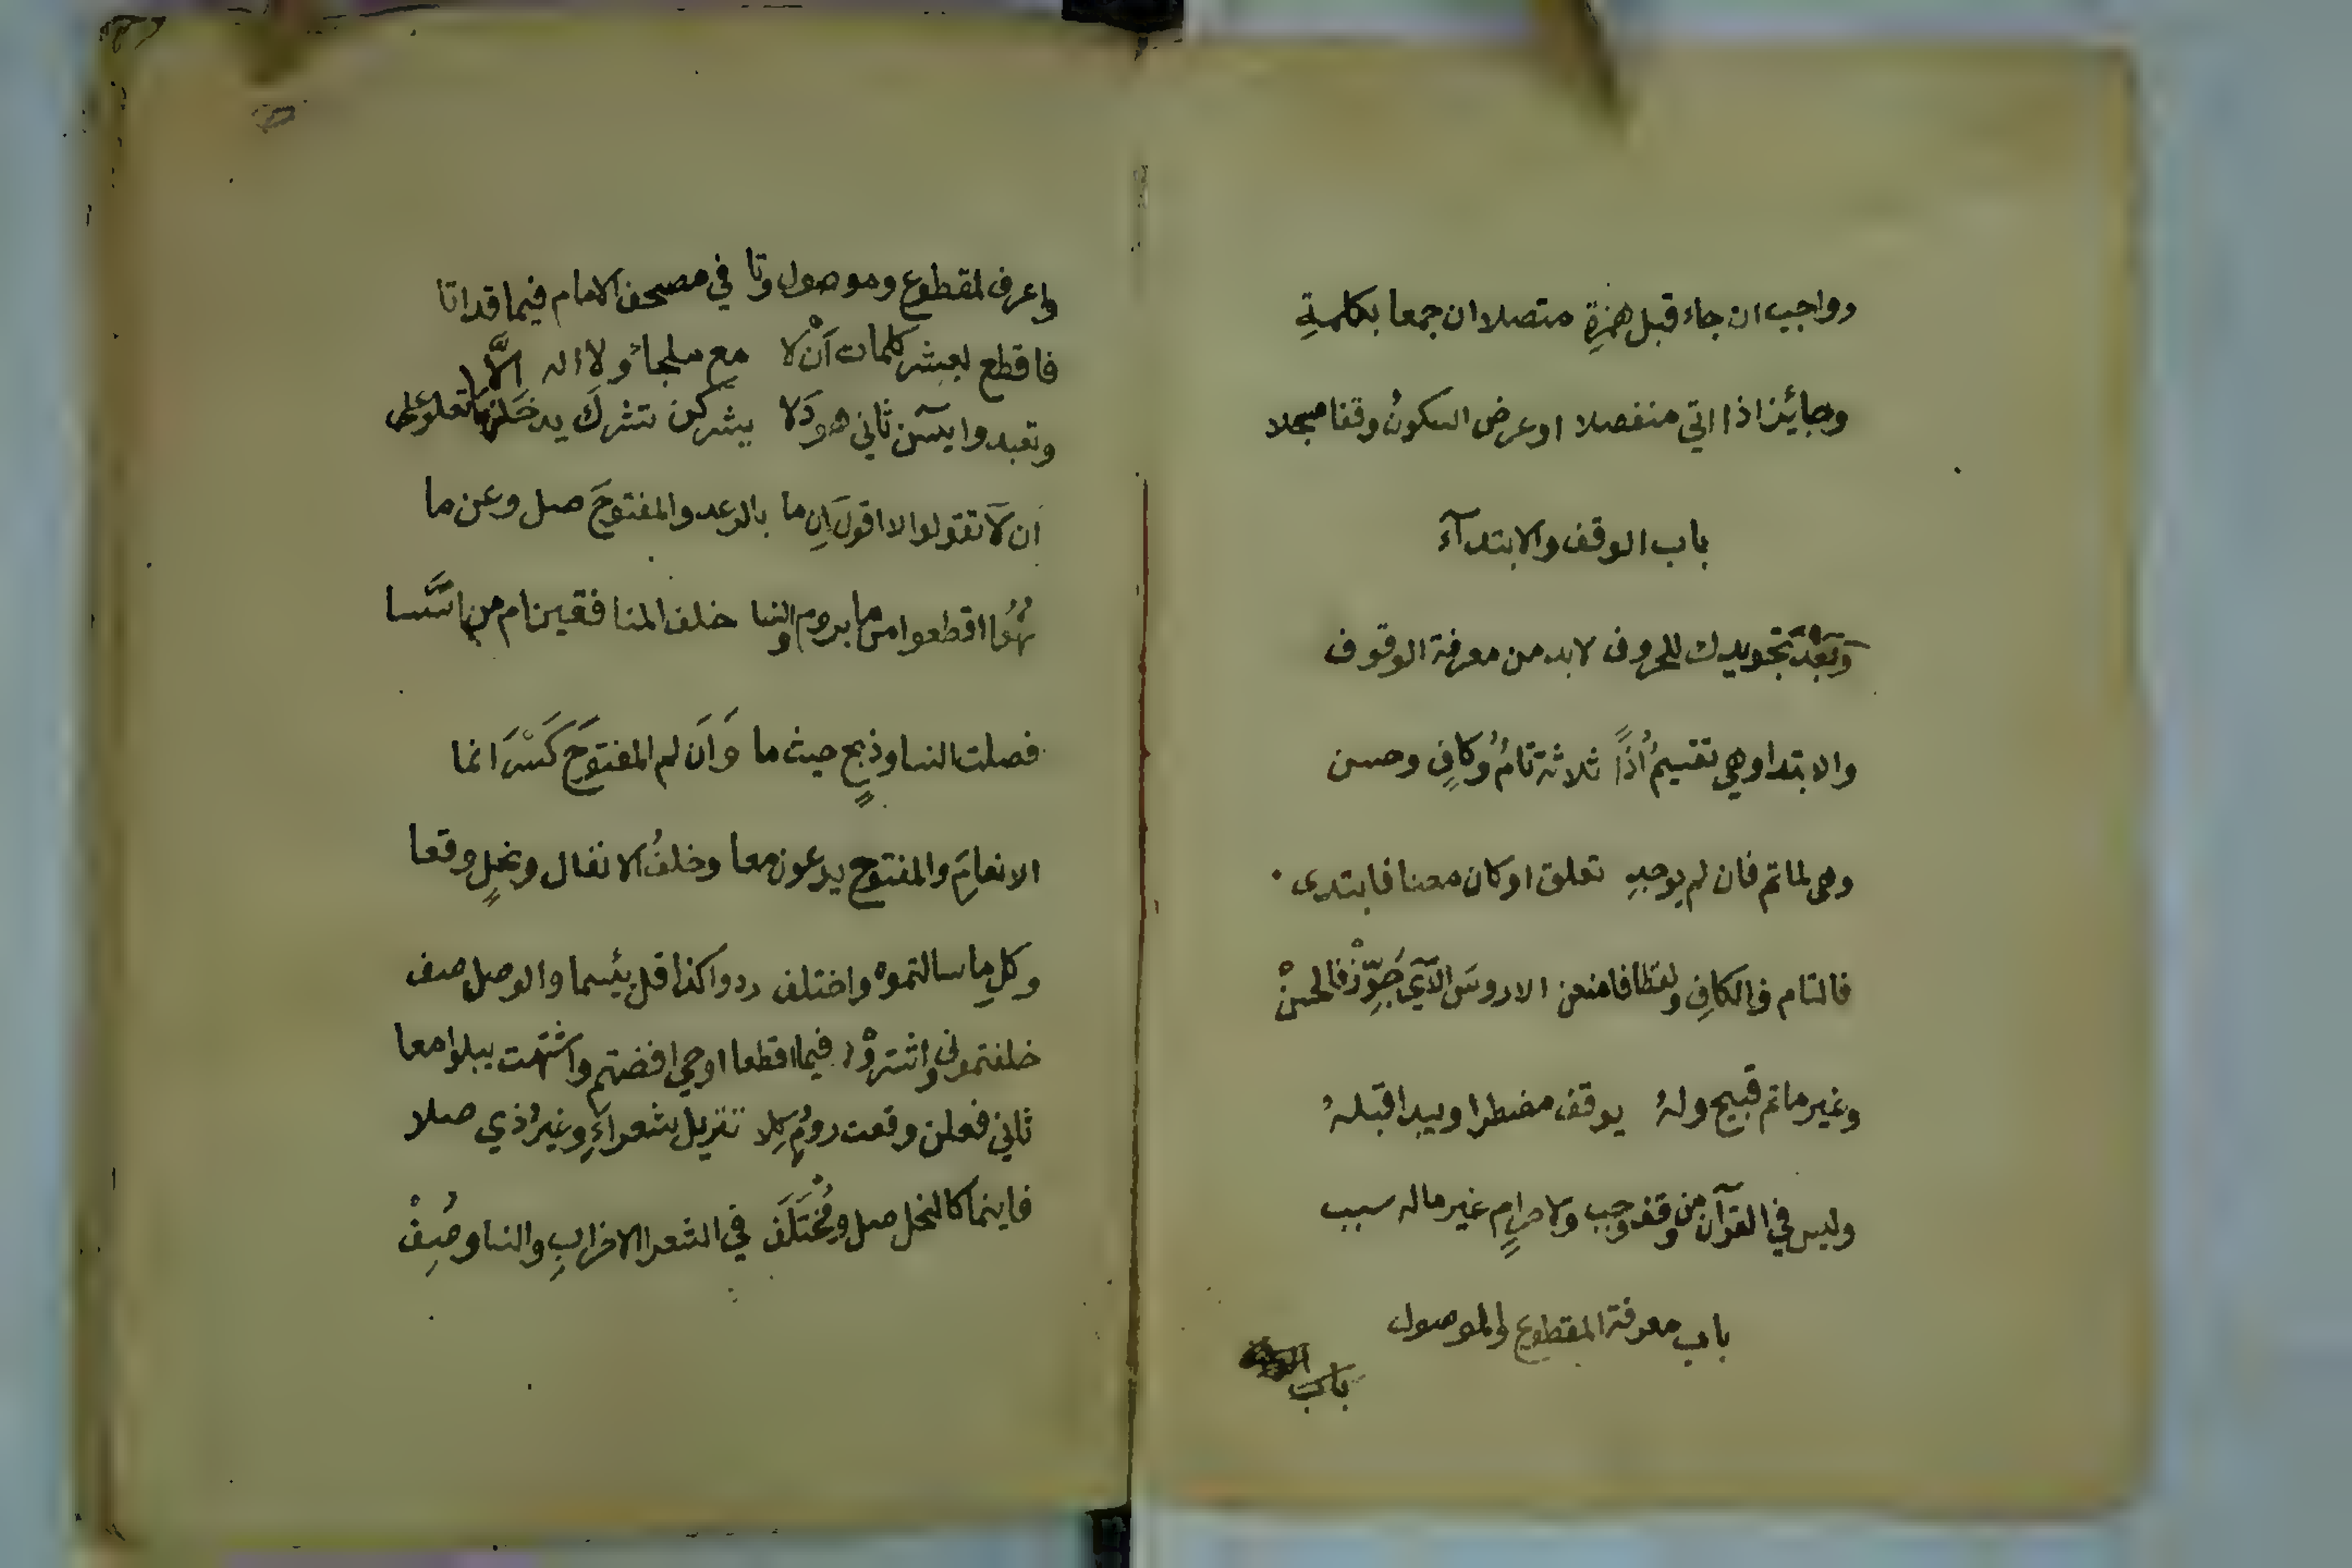 وواجب ان جاء قبل همزةٍ متصلا ان جمعا بكلمةِ
وجائز اذا اتي منفصلا او عرض السكونُ وقفا مسجلا
باب الوقف والابتدآء
وَبَعْدَ تَجويدك للحروف لابد من معرفة الوقوف
والابتدا وهي تقسيمُ اذًا ثلاثة تامُ وُكافٍ وحسن
وهي لما تم فان لم يوجدِ تعلق او كان معنا فابتدى
فالتام فالكافِ ولفظا فامنعن الا روسَ الآي جَوِّزْ فالحسنْ
وغير ما تم قبيح ولهُ يوقف مضطرا ويبدا قبلهُ
وليس في القرآن من وقف وجب ولا حرامٍ غير ماله سبب
باب معرفة المقطوع والموصول
باب
واعرف لمقطوع وموصول وتا في مصحف الامام فيما قد اتا
فاقطع بعشر كلمات اَنْ لا مع ملجاءُ ولا اله الَّا
وتعبدوا يسٓن ثاني هودَ لا يشركن تشركَ يدخلن تعلوعلى
ان لَا تقولوا لا اقولَ اِن ما بالرعد والمفتوحَ صل وعن ما
نُهُوا اقطعوا من ما بروم والنسا خلف المنافقين ام من اسَّسا
فصلت النسا وذبحٍ حيث ما وَاَن لم المفتوحَ كَسْرَ انما
الانعامَِ والمفتوح يدعون معا وخلفُ الانفال ونحلٍ وقعا
وكلِ ما سالتموه واختلف ردوا كذا قل بئسما والوصل صف
خلفتموني واشتروْا فيما اقطعا اوحي افضتم واشتهت يبلوا معا
ثاني فعلن وقعت رومُ كِلا تنزيل شعراءٍ وغيرُ ذي صلا
فاينما كالنحل صل ومُخْتَلَف في الشعرا الاحزابِ والنسا وصُِفْ